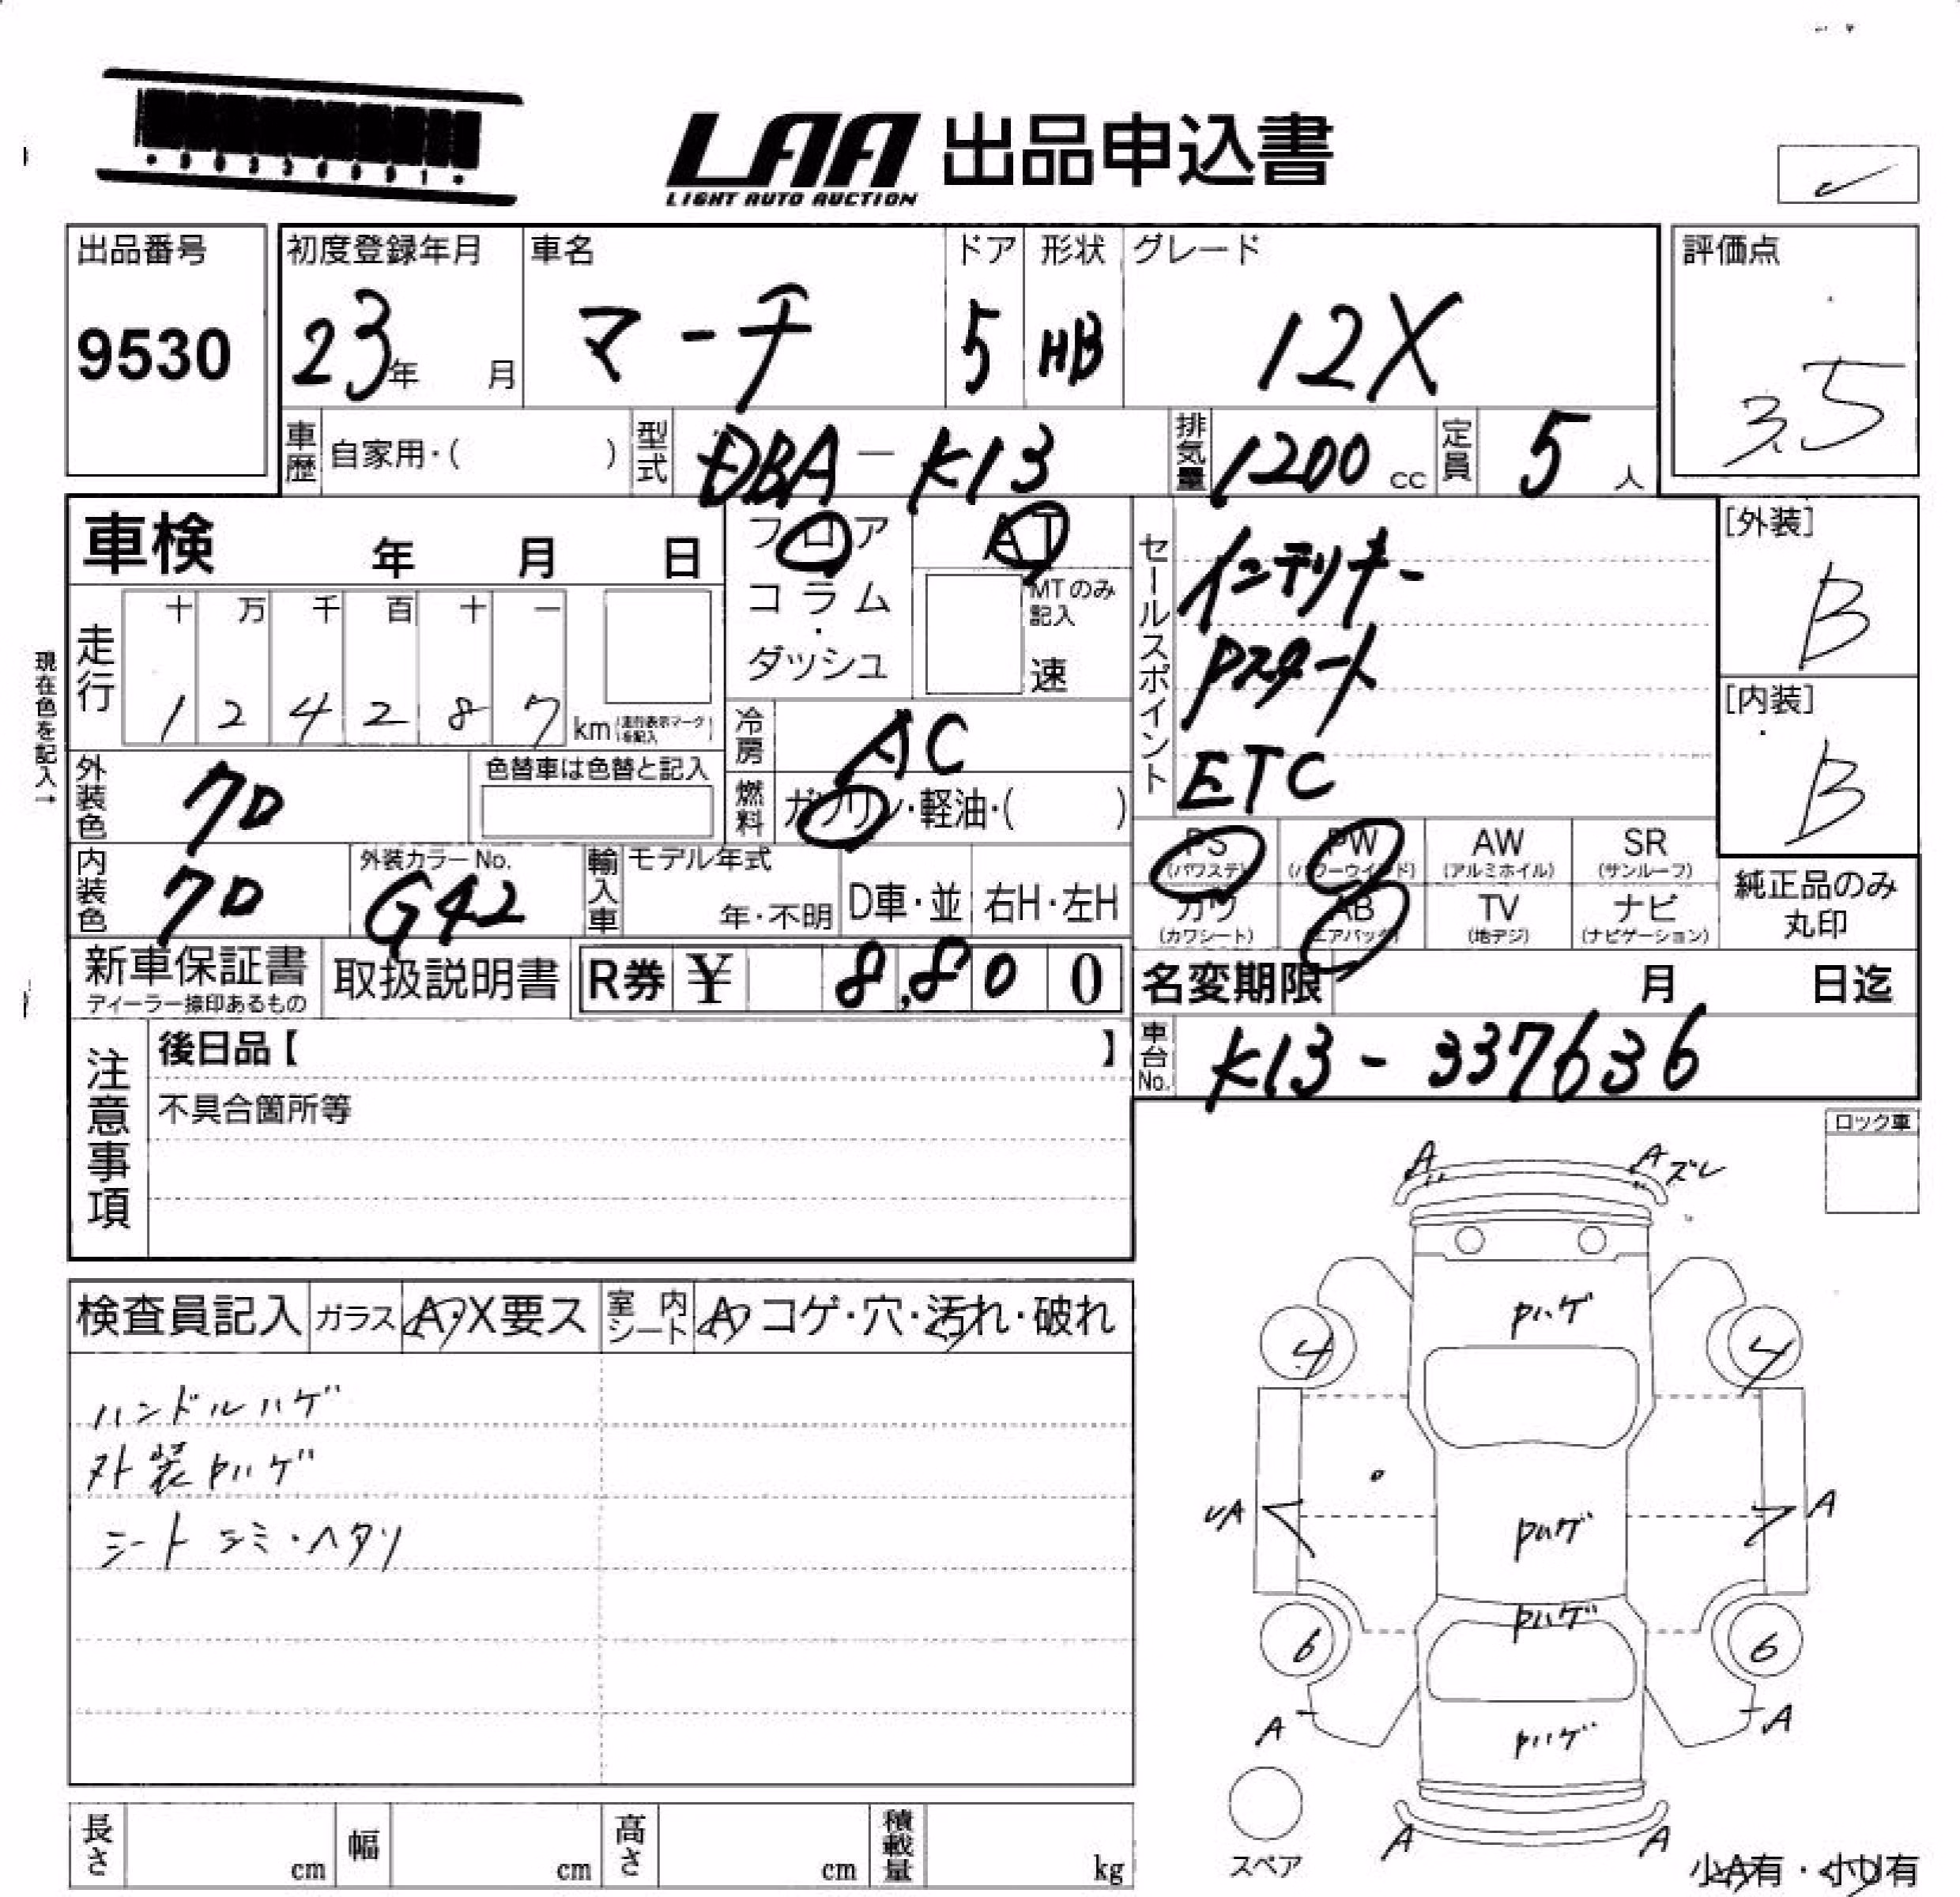 LAA 出品申込書
LIGHT AUTO AUCTION
出品番号
9530
初度登録年月
23年 月
車名
マーチ
ドア
5
形状
HB
グレード
12X
評価点
3.5
車歴 自家用・( )
型式 DBA-K13
排気量 1200 cc
定員 5 人
車検 年 月 日
フロア
コラム
・
ダッシュ
AT
MTのみ
記入
速
セールスポイント
インテリキー
Pスタート
ETC
[外装]
B
[内装]
B
現在色を記入→
走行
十 万 千 百 十 一
1 2 4 2 8 7 km
走行表示マーク
を記入
冷房 AC
外装色 クロ
色替車は色替と記入
燃料 ガソリン・軽油・( )
PS
(パワステ)
PW
(パワーウインド)
AW
(アルミホイル)
SR
(サンルーフ)
カワ
(カワシート)
AB
(エアバック)
TV
(地デジ)
ナビ
(ナビゲーション)
純正品のみ
丸印
内装色 クロ
外装カラーNo.
G42
輸入車
モデル年式
年・不明
D車・並
右H・左H
新車保証書
ディーラー捺印あるもの
取扱説明書
R券 ¥ 8,800
名変期限 月 日迄
車台No. K13-337636
注意事項
後日品【 】
不具合箇所等
ロック車
A A ズレ
検査員記入
ガラス A・X要ス
室内シート A コゲ・穴・汚れ・破れ
ハンドルハゲ
外装Pハゲ
シート シミ・ヘタリ
Pハゲ
4 4
A A
Pハゲ
Pハゲ
6 6
A A
Pハゲ
スペア
A A
小A有・小U有
長さ cm
幅 cm
高さ cm
積載量 kg